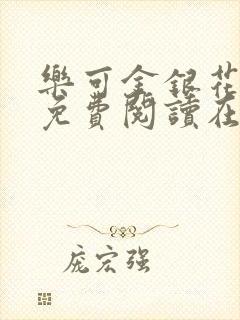 樂可金銀花
免費閱讀在
庞宏强